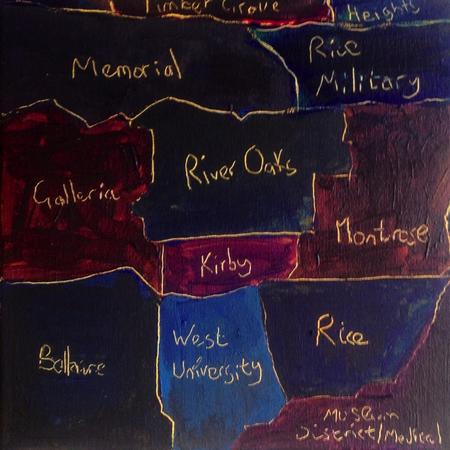 Timber Grove
Heights
Memorial
Rice
Military
Galleria
River Oaks
Montrose
Kirby
Bellaire
West
University
Rice
Museum
District/Medical